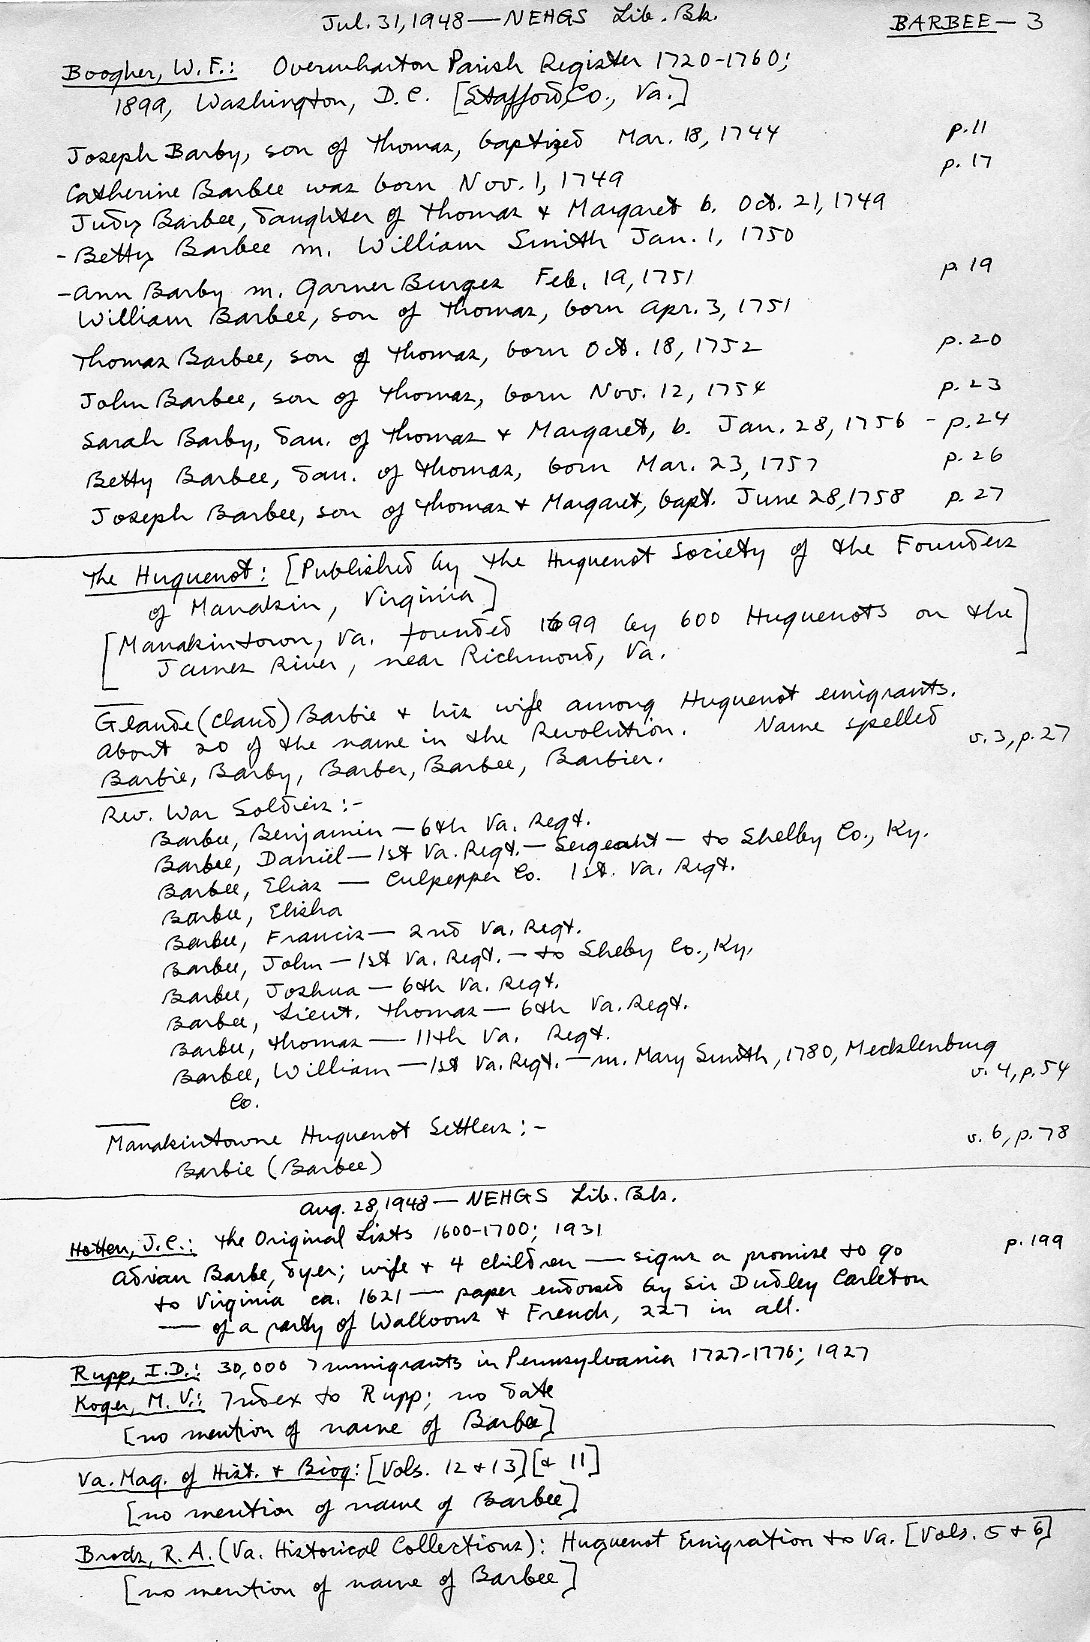 Jul. 31, 1948 — NEHGS Lib. Bk. BARBEE — 3
Boogher, W. F.: Overwharton Parish Register 1720-1760;
1899, Washington, D. C. [Stafford Co., Va.]
Joseph Barby, son of Thomas, baptized Mar. 18, 1744 p. 11
Catherine Barbee was born Nov. 1, 1749 p. 17
Judy Barbee, daughter of Thomas & Margaret b. Oct. 21, 1749
- Betty Barbee m. William Smith Jan. 1, 1750
- Ann Barby m. Garner Burges Feb. 19, 1751 p. 19
William Barbee, son of Thomas, born Apr. 3, 1751
Thomas Barbee, son of Thomas, born Oct. 18, 1752 p. 20
John Barbee, son of Thomas, born Nov. 12, 1754 p. 23
Sarah Barby, dau. of Thomas & Margaret, b. Jan. 28, 1756 - p. 24
Betty Barbee, dau. of Thomas, born Mar. 23, 1757 p. 26
Joseph Barbee, son of Thomas & Margaret, bapt. June 28, 1758 p. 27
The Huguenot: [Published by the Huguenot Society of the Founders
of Manakin, Virginia]
[Manakintown, Va. founded 1699 by 600 Huguenots on the
James River, near Richmond, Va.]
Glaude (Claud) Barbie & his wife among Huguenot emigrants.
About 20 of the name in the Revolution. Name spelled
Barbie, Barby, Barber, Barbee, Barbier. v. 3, p. 27
Rev. War Soldiers :-
Barbee, Benjamin — 6th Va. Regt.
Barbee, Daniel — 1st Va. Regt. — Sergeant — to Shelby Co., Ky.
Barbee, Elias — Culpepper Co. 1st. Va. Regt.
Barbee, Elisha
Barbee, Francis — 2nd Va. Regt.
Barbee, John — 1st Va. Regt. — to Sheby Co., Ky.
Barbee, Joshua — 6th Va. Regt.
Barbee, Lieut. Thomas — 6th Va. Regt.
Barbee, Thomas — 11th Va. Regt.
Barbee, William — 1st Va. Regt. — m. Mary Smith, 1780, Mecklenburg
Co. v. 4, p. 54
Manakintowne Huguenot Settlers :- v. 6, p. 78
Barbie (Barbee)
Aug. 28, 1948 — NEHGS Lib. Bk.
Hotten, J. C.: The Original Lists 1600-1700; 1931 p. 199
Adrian Barbe, dyer; wife & 4 children — signs a promise to go
to Virginia ca. 1621 — paper endorsed by Sir Dudley Carleton
— of a party of Walloons & French, 227 in all.
Rupp, I. D.: 30,000 Immigrants in Pennsylvania 1727-1776; 1927
Koger, M. V.: Index to Rupp; no date
[no mention of name of Barbee]
Va. Mag. of Hist. & Biog: [Vols. 12 & 13] [& 11]
[no mention of name of Barbee]
Brock, R. A. (Va. Historical Collections): Huguenot Emigration to Va. [Vols. 5 & 6]
[no mention of name of Barbee]